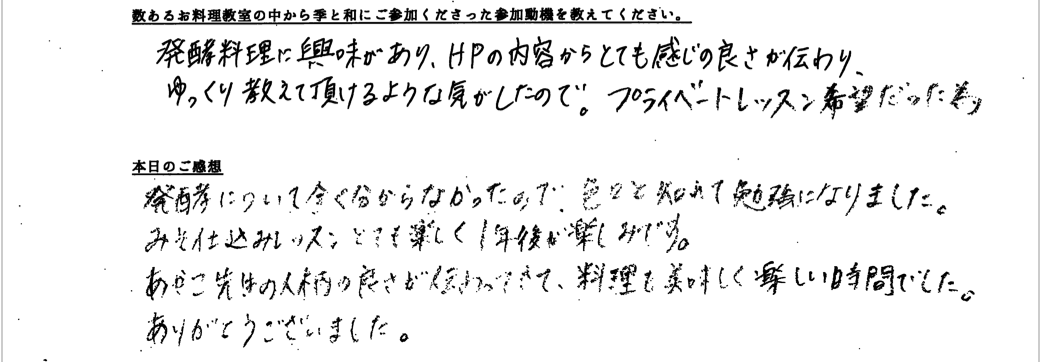 数あるお料理教室の中から季と和にご参加くださった参加動機を教えてください。
発酵料理に興味があり、HPの内容からとても感じの良さが伝わり、
ゆっくり教えて頂けるような気がしたので。プライベートレッスン希望だった為
本日のご感想
発酵について全く分からなかったので、色々と知れて勉強になりました。
みそ仕込みレッスンとても楽しく1年後が楽しみです。
あやこ先生の人柄の良さが伝わってきて、料理も美味しく楽しい時間でした。
ありがとうございました。